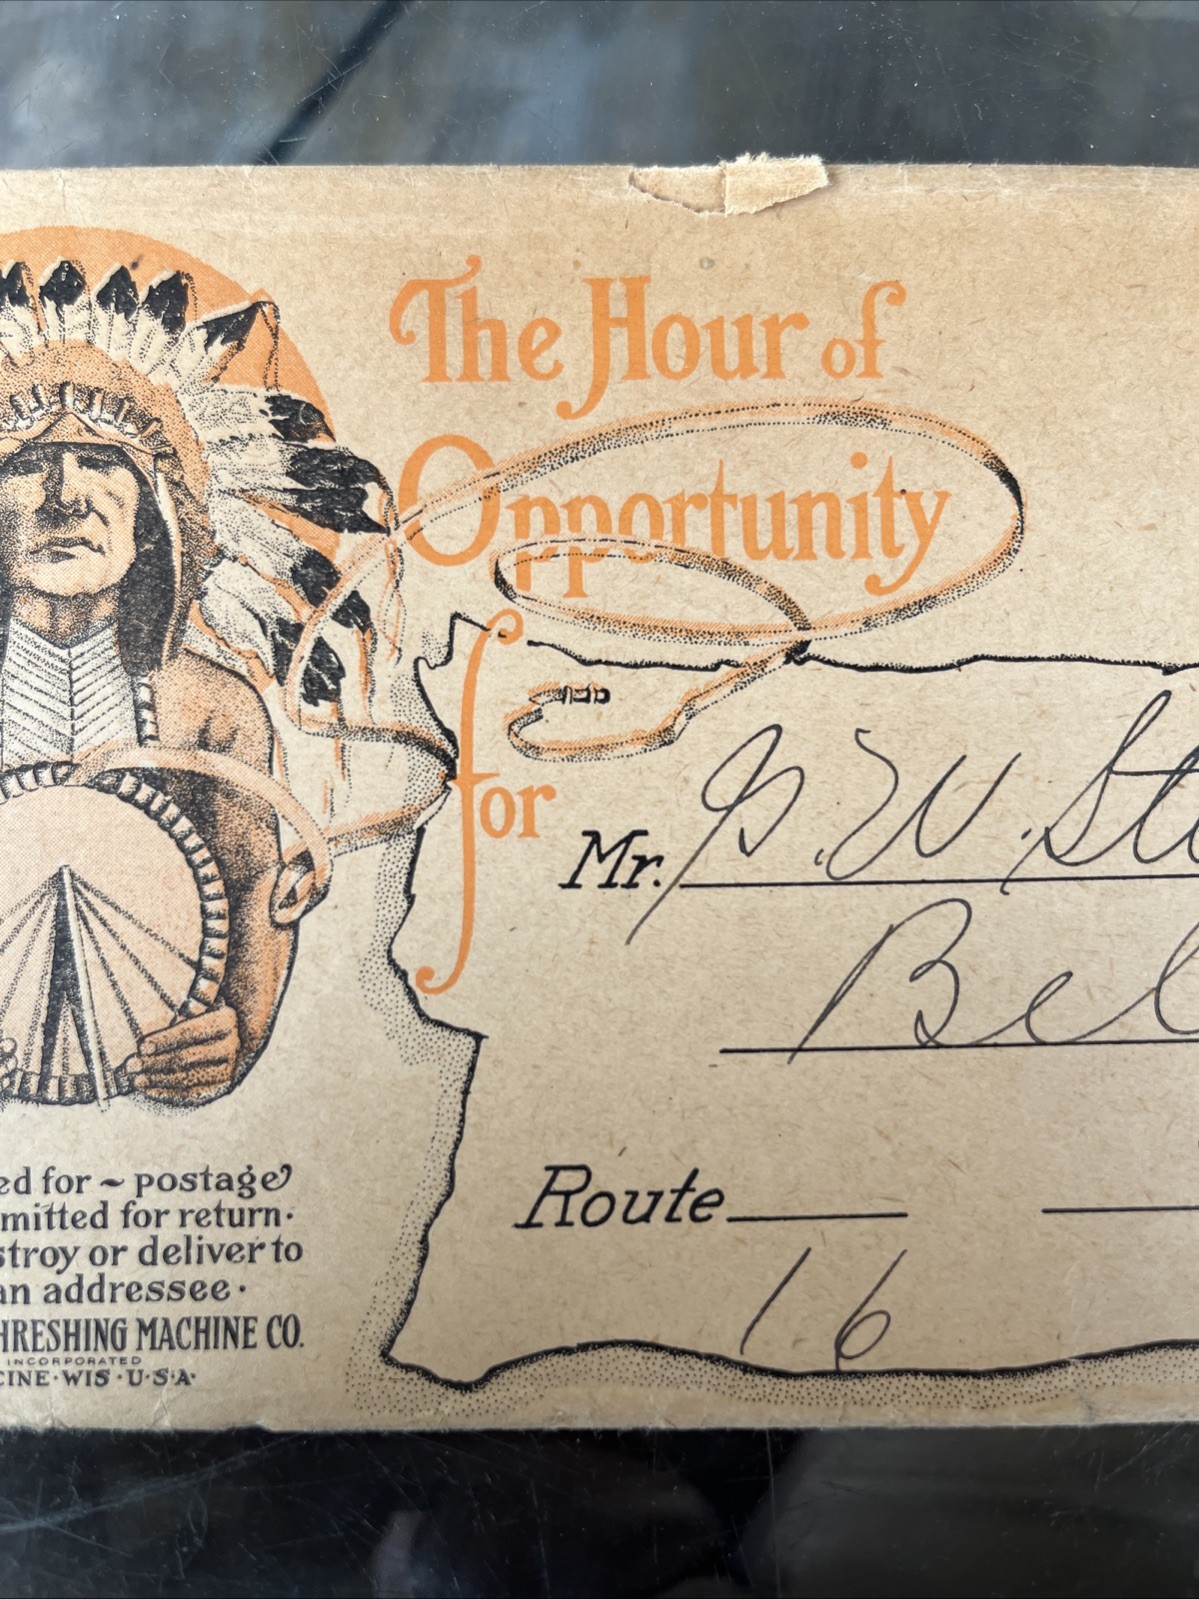 The Hour of
Opportunity
for
Mr. G. W. St
Bel
Route
16
ed for ~ postage
mitted for return.
stroy or deliver to
an addressee.
HRESHING MACHINE CO.
INCORPORATED
CINE·WIS·U·S·A·